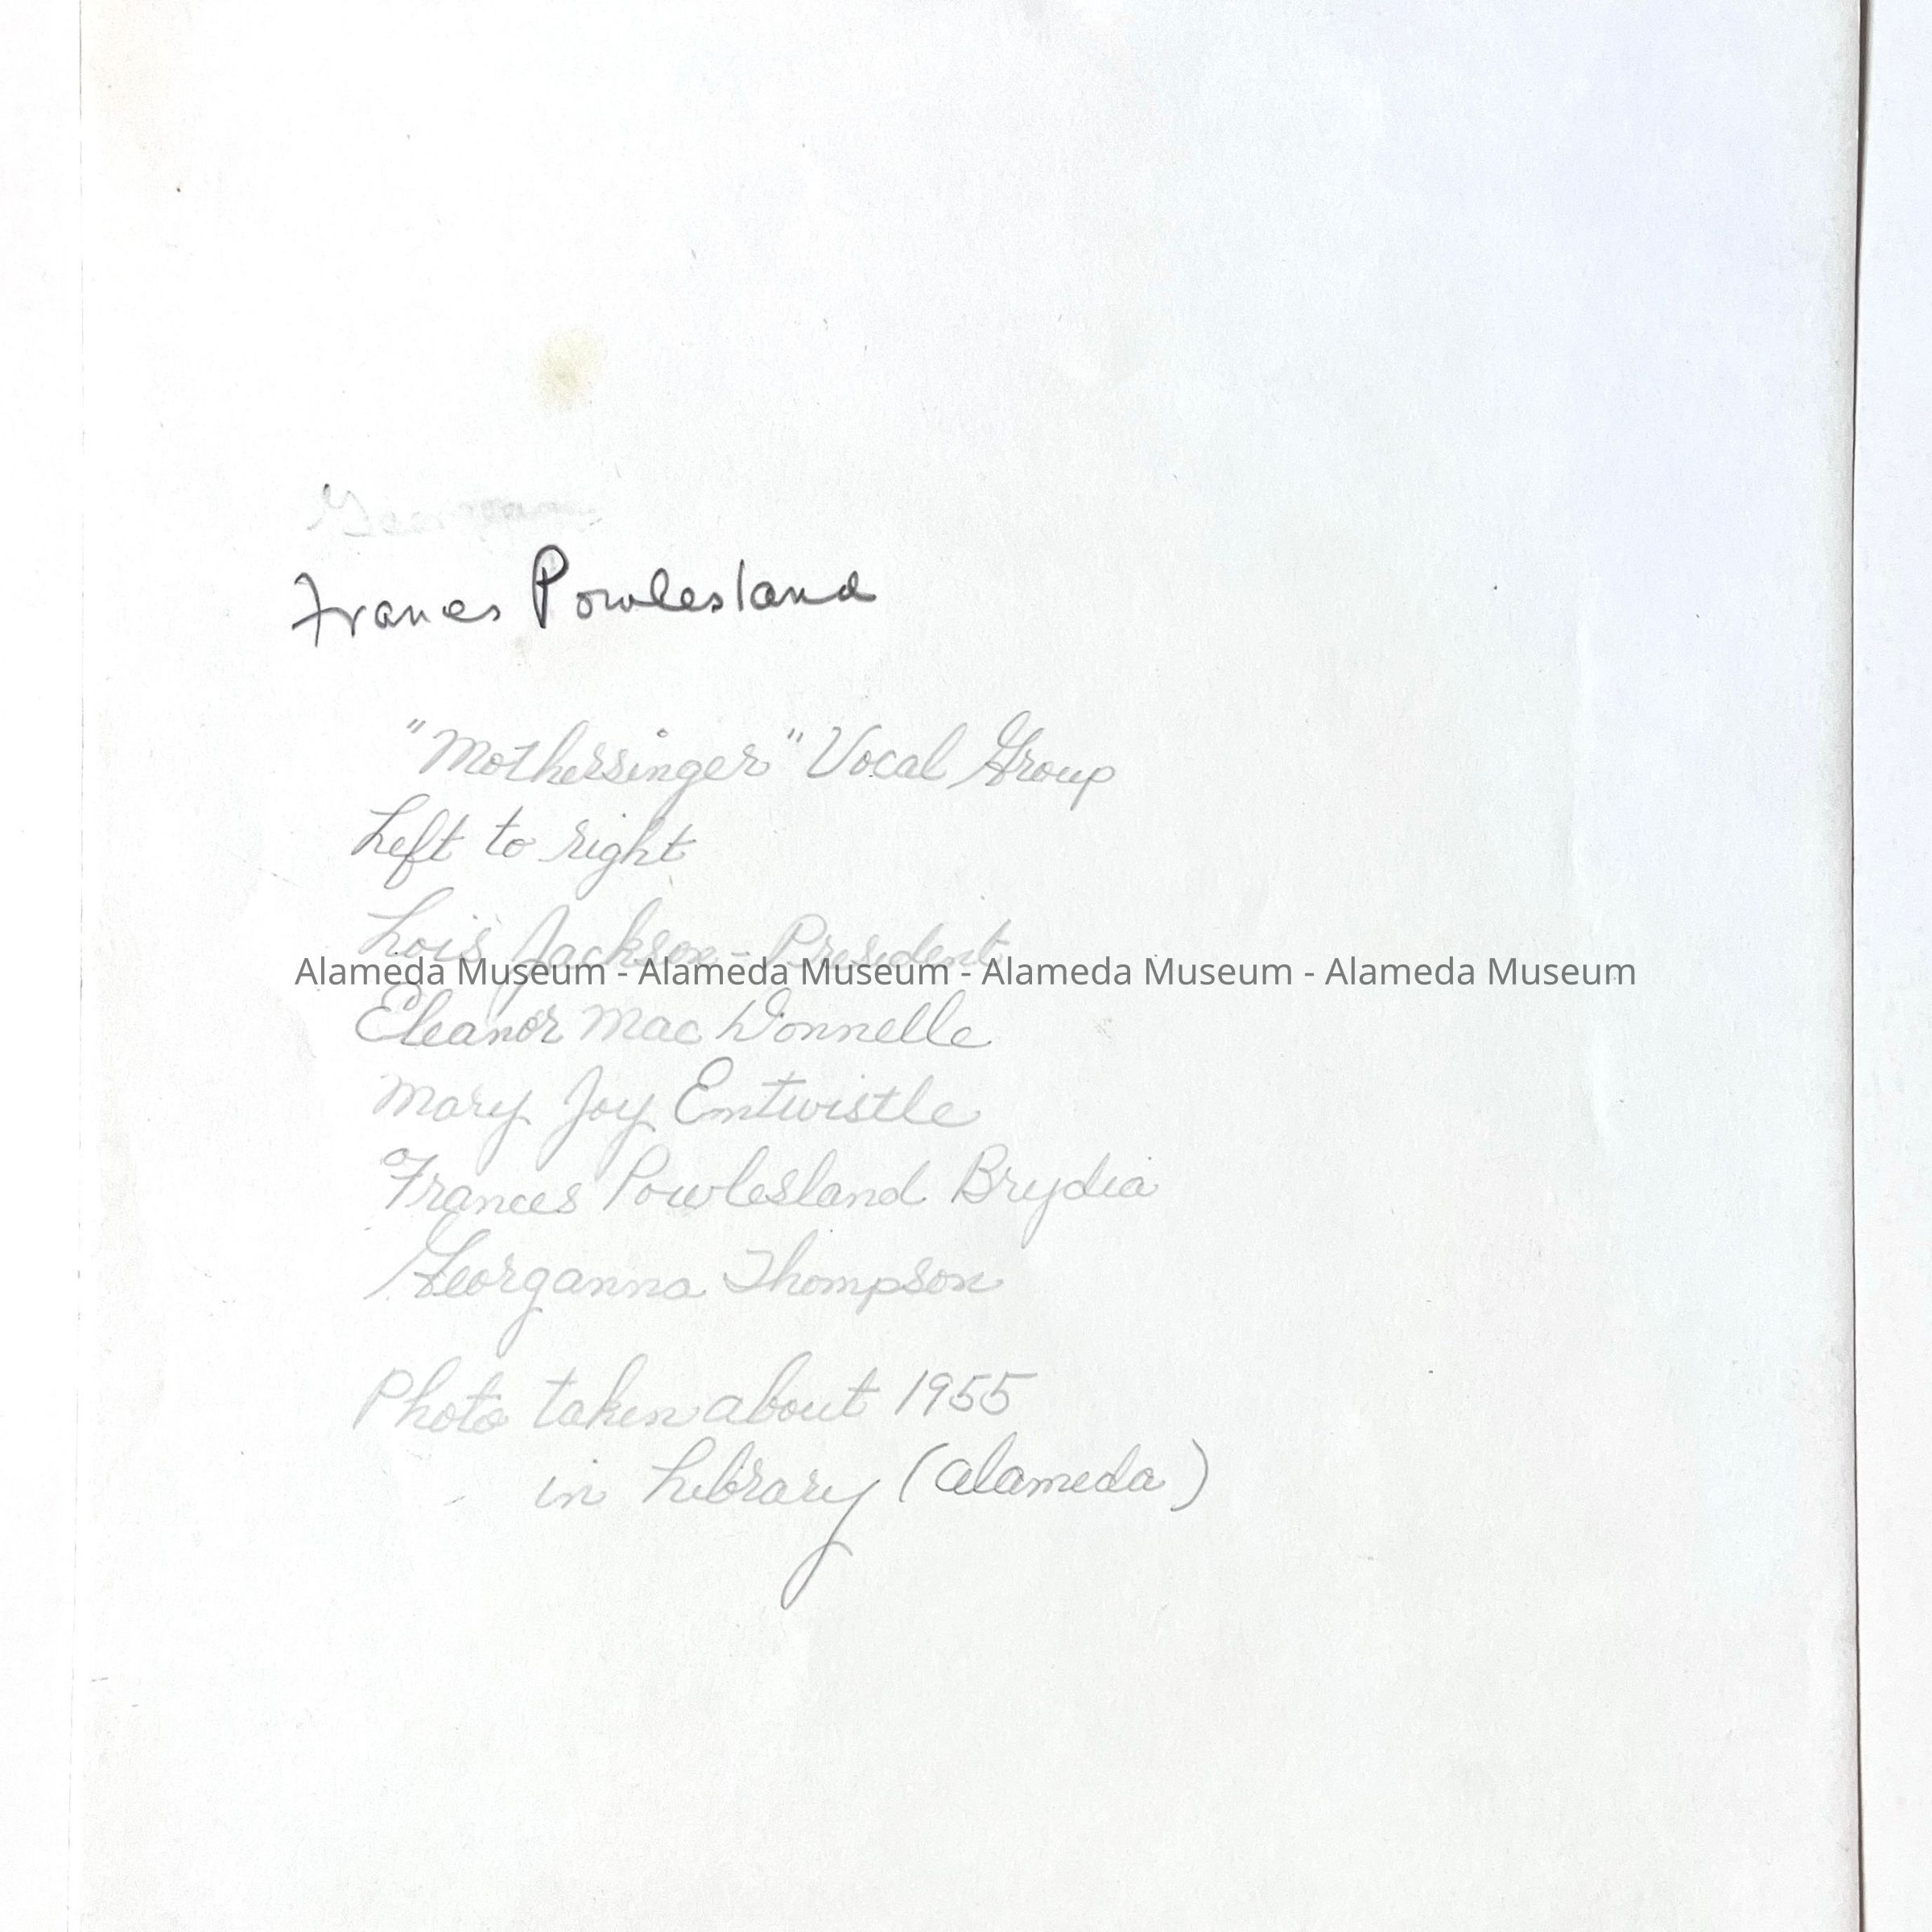 Frances Powlesland
"Mothersinger" Vocal Group
Left to right
Lois Jackson - President
Alameda Museum - Alameda Museum - Alameda Museum - Alameda Museum
Eleanor Mac Donnelle
Mary Joy Entwistle
Frances Powlesland Brydia
Georganna Thompson
Photo taken about 1955
in Library (Alameda)